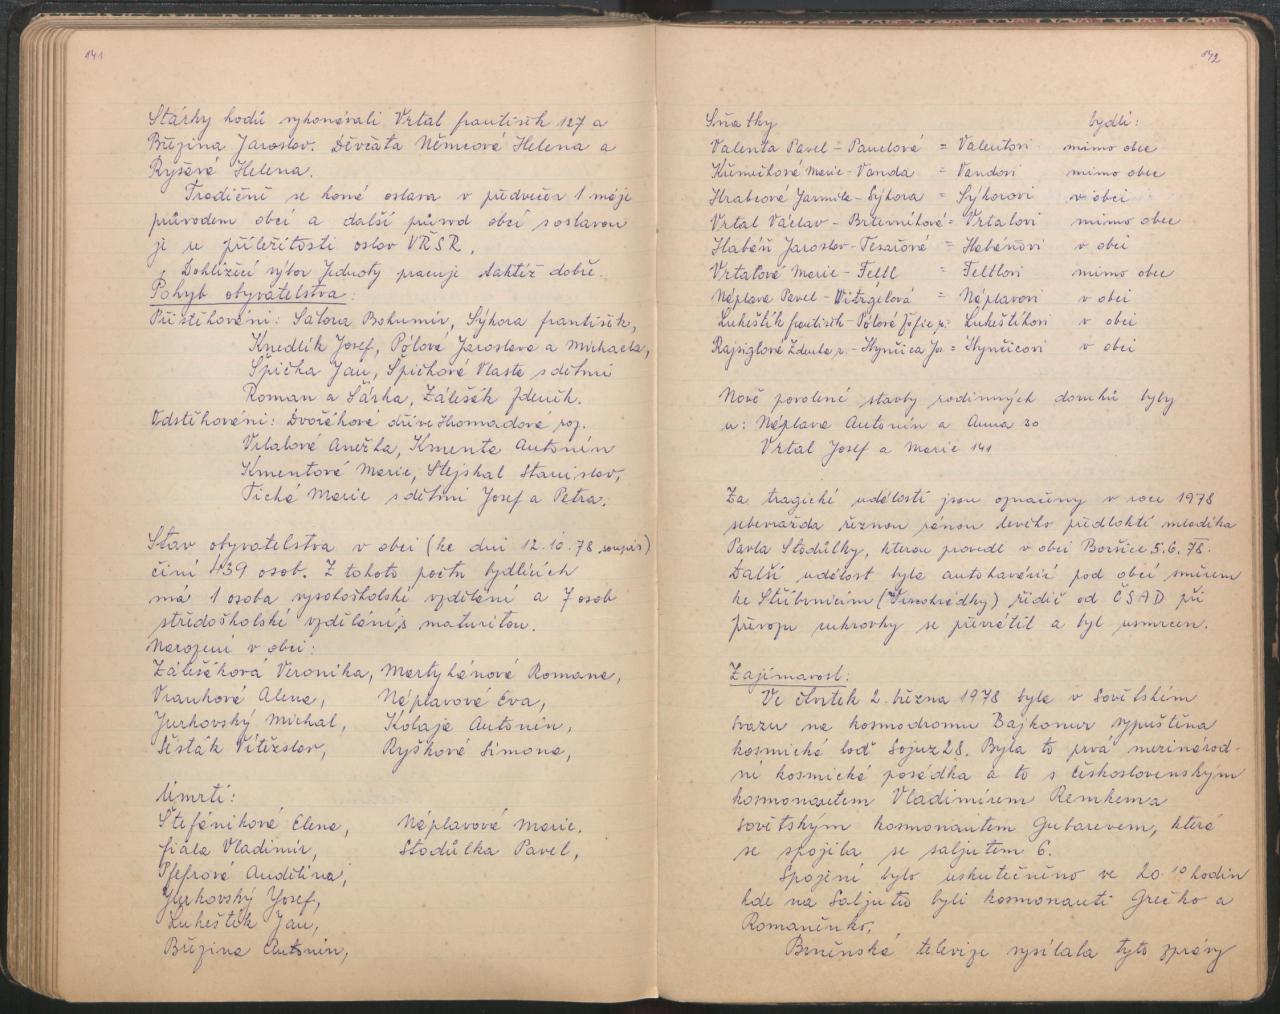 141
Stárky hodů vykonávali Vrtal František 127 a
Březina Jaroslav. Děvčata Němcová Helena a
Ryšavá Helena.
Tradičně se koná oslava v předvečer 1 máje
průvodem obcí a další průvod obcí s oslavou
je u příležitosti oslav VŘSR.
Dohlížecí výbor Jednoty pracuje taktéž dobře.
Pohyb obyvatelstva:
Přistěhováni: Satora Bohumír, Sýkora František,
Knedlík Josef, Pólová Jaroslava a Michaela,
Špička Jan, Špičková Vlasta s dětmi
Roman a Šárka, Zálešák Zdeněk.
Odstěhováni: Dvořáková dříve Hromadová roz.
Vrtalová Anežka, Kmenta Antonín
Kmentová Marie, Stejskal Stanislav,
Tichá Marie s dětmi Josef a Petra.
Stav obyvatelstva v obci (ke dni 12.10.78 soupis)
činí 439 osob. Z tohoto počtu bydlících
má 1 osoba vysokoškolské vzdělání a 7 osob
středoškolské vzdělání s maturitou.
Narozeni v obci:
Zálešáková Veronika, Martykánová Romana,
Vraňková Alena, Náplavová Eva,
Jurkovský Michal, Kolaja Antonín,
Šesták Vítězslav, Ryšková Simona,
Úmrtí:
Štefániková Elena, Náplavová Marie.
Fiala Vladimír, Stodůlka Pavel,
Pfefrová Andělína,
Jurkovský Josef,
Lukeštík Jan,
Březina Antonín,
142
Sňatky bydlí:
Valenta Pavel - Panclová = Valentovi mimo obec
Křmečková Marie - Vanda = Vandovi mimo obec
Hrabcová Jarmila - Sýkora = Sýkorovi v obci
Vrtal Václav - Brtevníková = Vrtalovi mimo obec
Habáň Jaroslav - Tesařová = Habáňovi v obci
Vrtalová Marie - Feltl = Feltlovi mimo obec
Náplava Pavel - Vitrgélová = Náplavovi v obci
Lukeštík František - Pólová Žofie r. = Lukeštíkovi v obci
Rajsiglová Zdenka r. - Hynčica Jo. = Hynčicovi v obci
Nově povolení stavby rodinných domků byly
u: Náplava Antonín a Anna 30
Vrtal Josef a Marie 141
Za tragické události jsou označeny v roce 1978
sebevražda řeznou ránou levého předloktí mladíka
Pavla Stodůlky, kterou provedl v obci Boršice 5.6.78.
Další událost byla autohavárií pod obcí směrem
ke Stříbnicím (Vinohrádky) řidič od ČSAD při
převozu cukrovky se převrátil a byl usmrcen.
Zajímavost:
Ve čtvrtek 2. března 1978 byla v Sovětském
svazu na kosmodromu Bajkonur vypuštěna
kosmická loď Sojuz 28. Byla to prvá mezinárod-
ní kosmická posádka a to s československým
kosmonautem Vladimírem Remkem a
sovětským kosmonautem Gubarevem, která
se spojila se saljutem 6.
Spojení bylo uskutečněno ve 20.10 hodin
kde na Saljutu byli kosmonauti Grečko a
Romaněnko,
Brněnská televize vysílala tyto zprávy